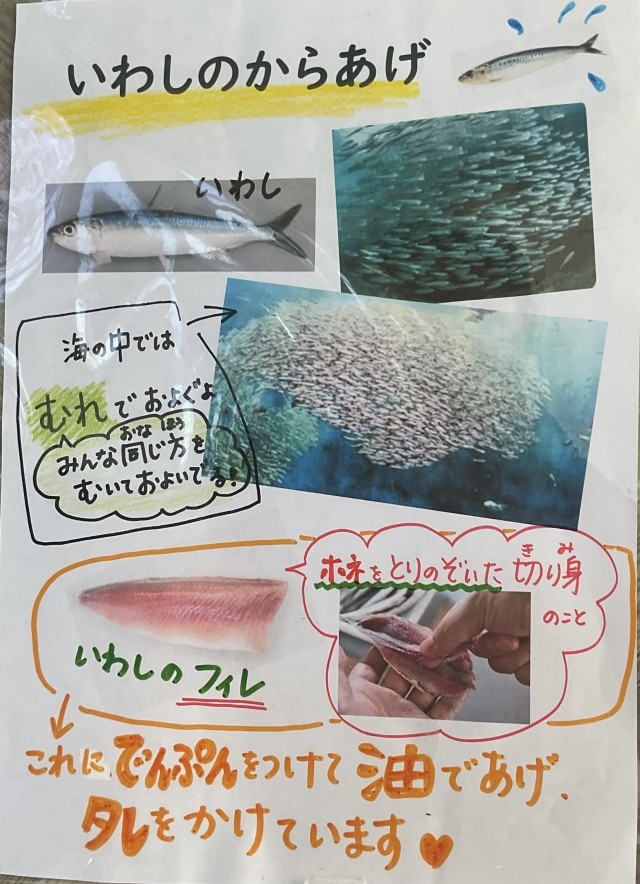 いわしのからあげ
いわし
海の中では
むれでおよぐよ
おな ほう
みんな同じ方を
むいておよいでる!
き み
ホネをとりのぞいた切り身
のこと
いわしのフィレ
これにでんぷんをつけて油であげ、
タレをかけています♥